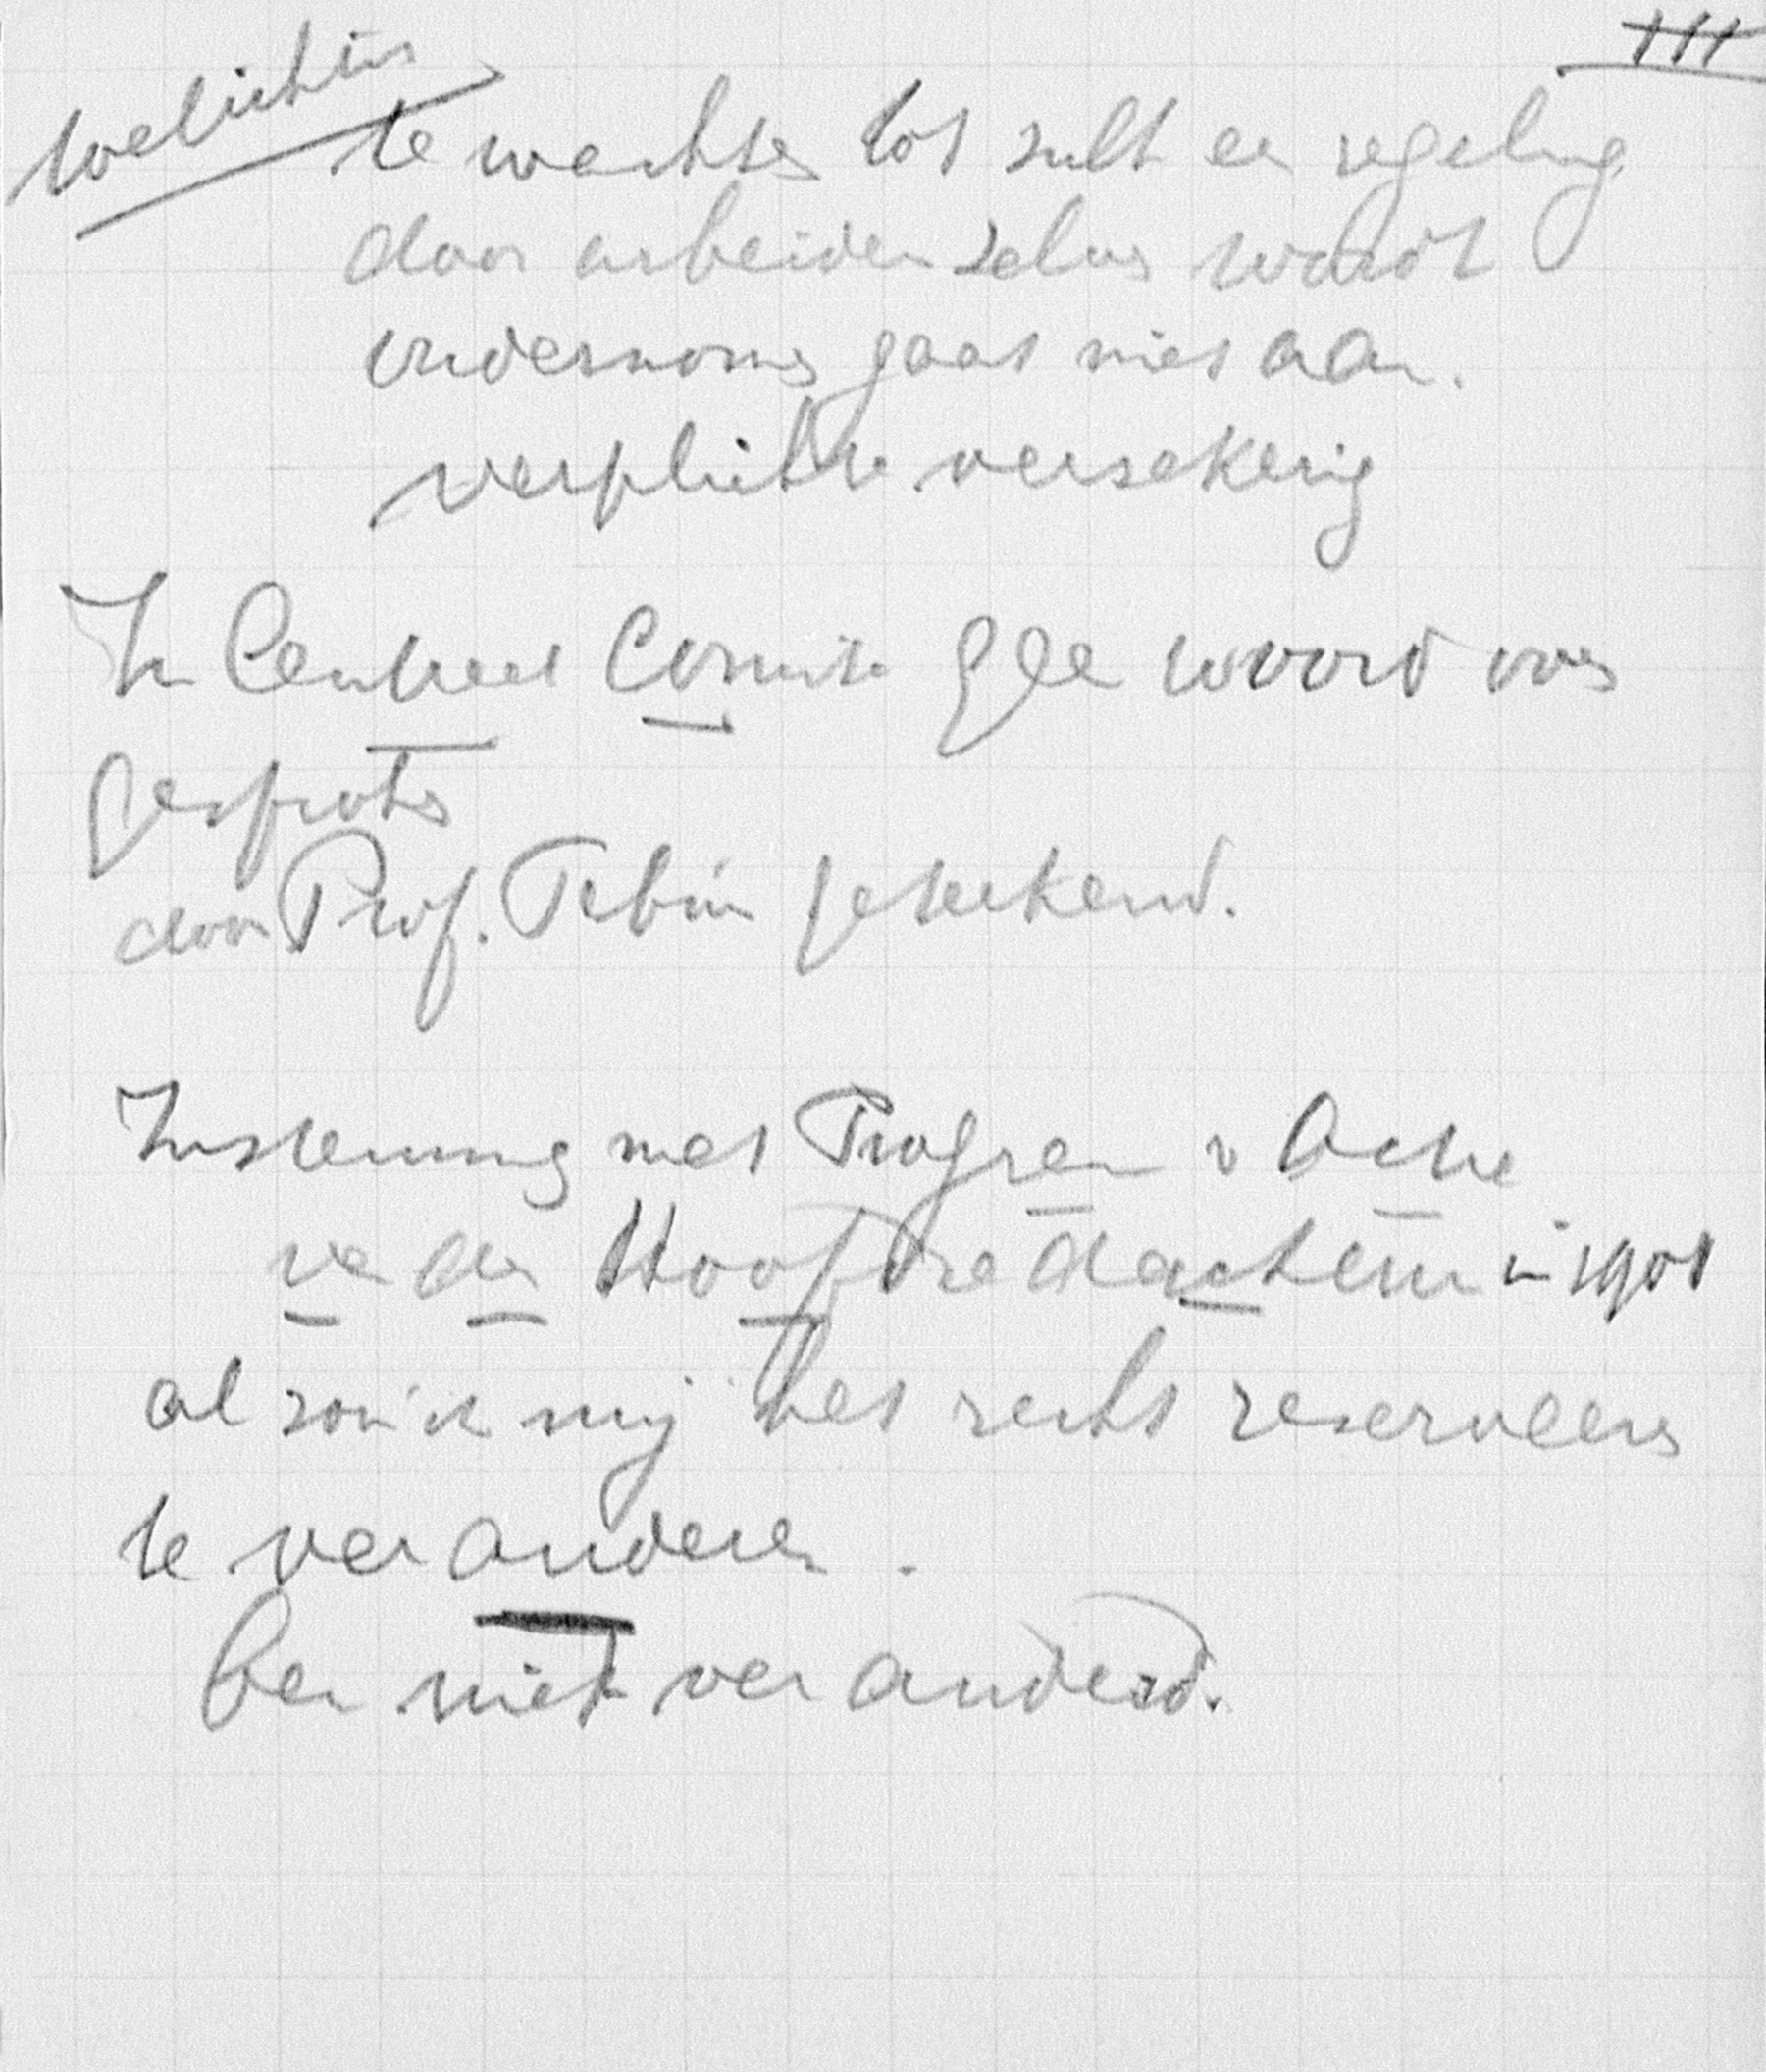 III
te wachten tot zulk een regeling
door arbeiders zelve wordt
ondernomen gaat niet aan.
verplichte verzekering
In Centraal Comité geen woord over
gesproken
door Prof. geteekend.
Instemming met Program v Actie
van den Hoofdredacteur in 1901
al zou ik mij het recht reserveeren
te veranderen.
Ben niet veranderd.